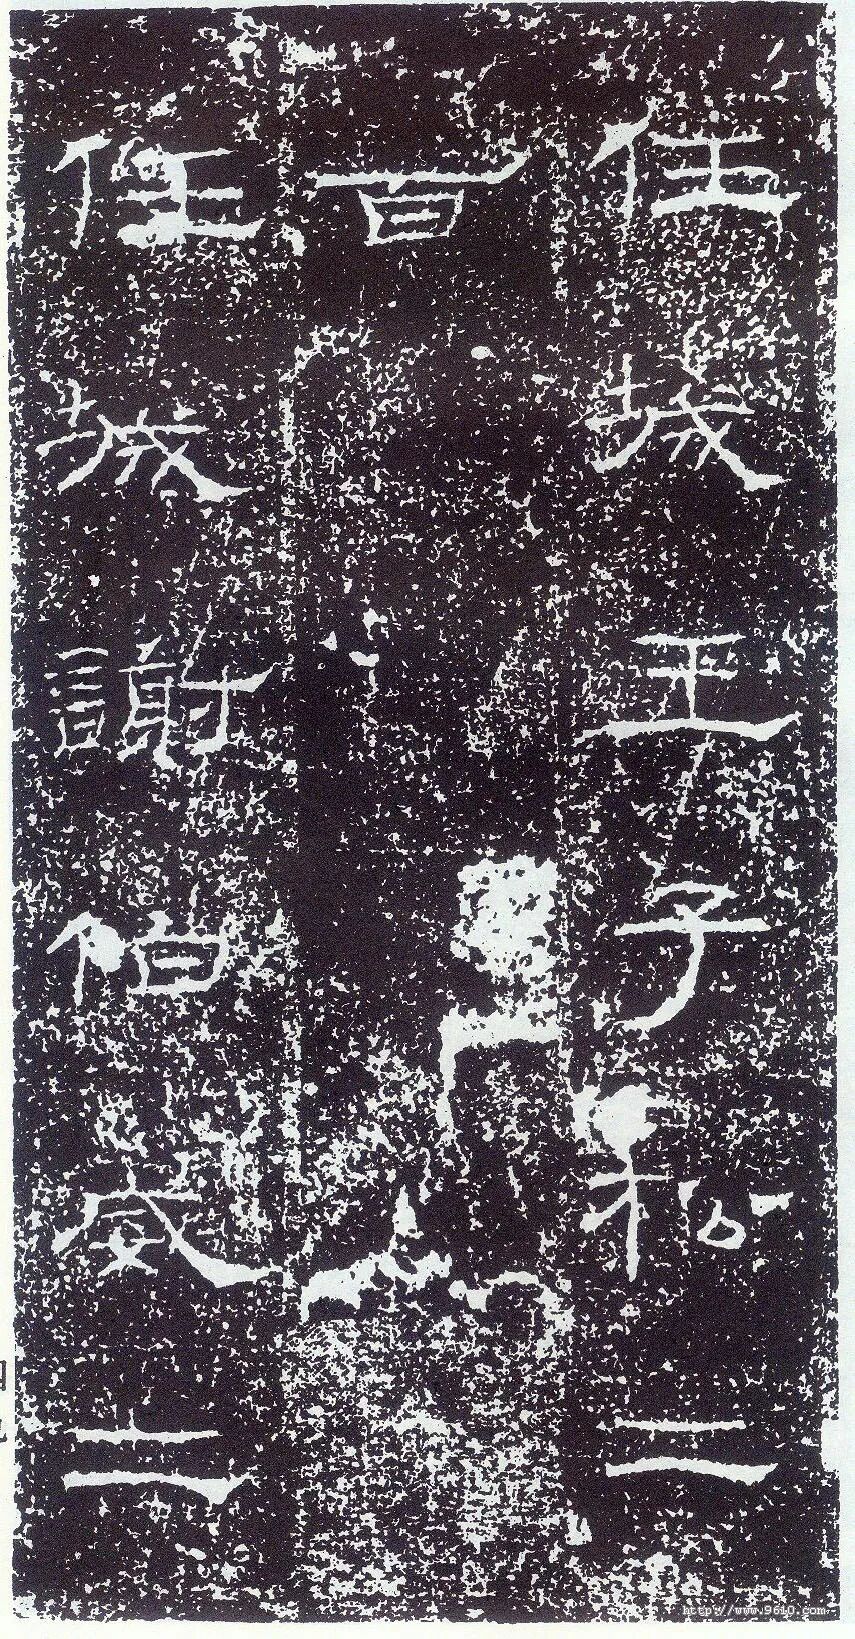 任城王子松二
百
任城謝伯威二
http://www.9610.com